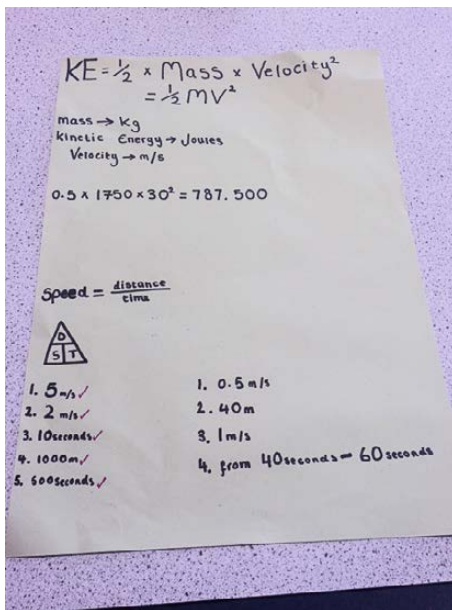 KE = 1/2 × Mass × Velocity²
= 1/2 MV²
mass → Kg
Kinetic Energy → Joules
Velocity → m/s
0.5 × 1750 × 30² = 787.500
Speed = distance/time
D
S T
1. 5 m/s ✓
2. 2 m/s ✓
3. 10seconds ✓
4. 1000m ✓
5. 600seconds ✓
1. 0.5 m/s
2. 40m
3. 1m/s
4. from 40seconds - 60 seconds